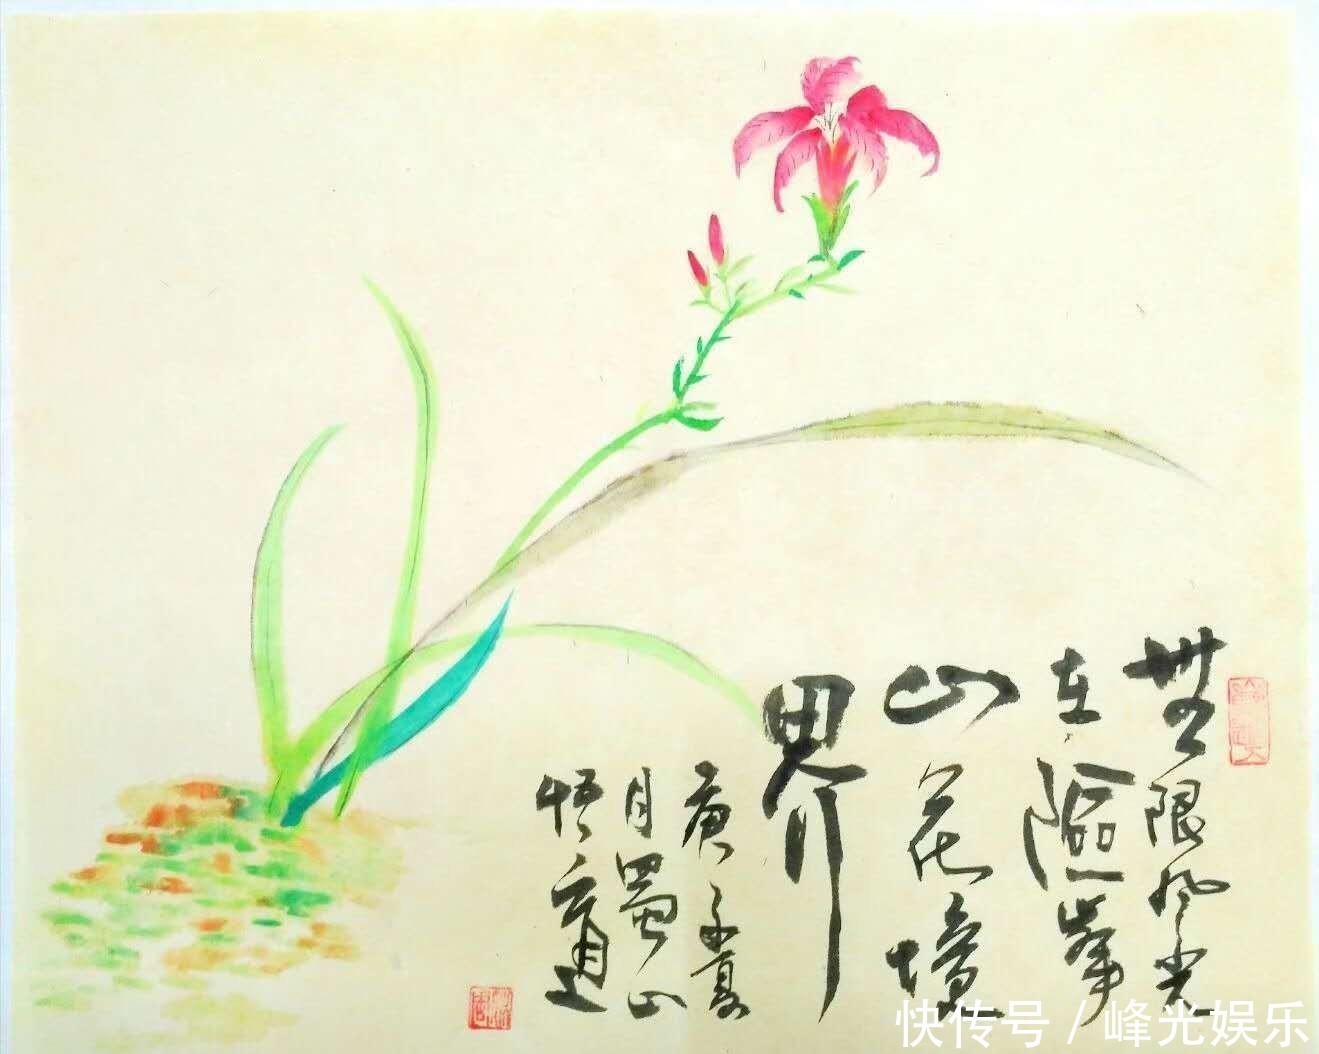 無限风光
在險峯
山花境
界
庚子夏
月蜀山
悟
快传号 / 峰光娱乐